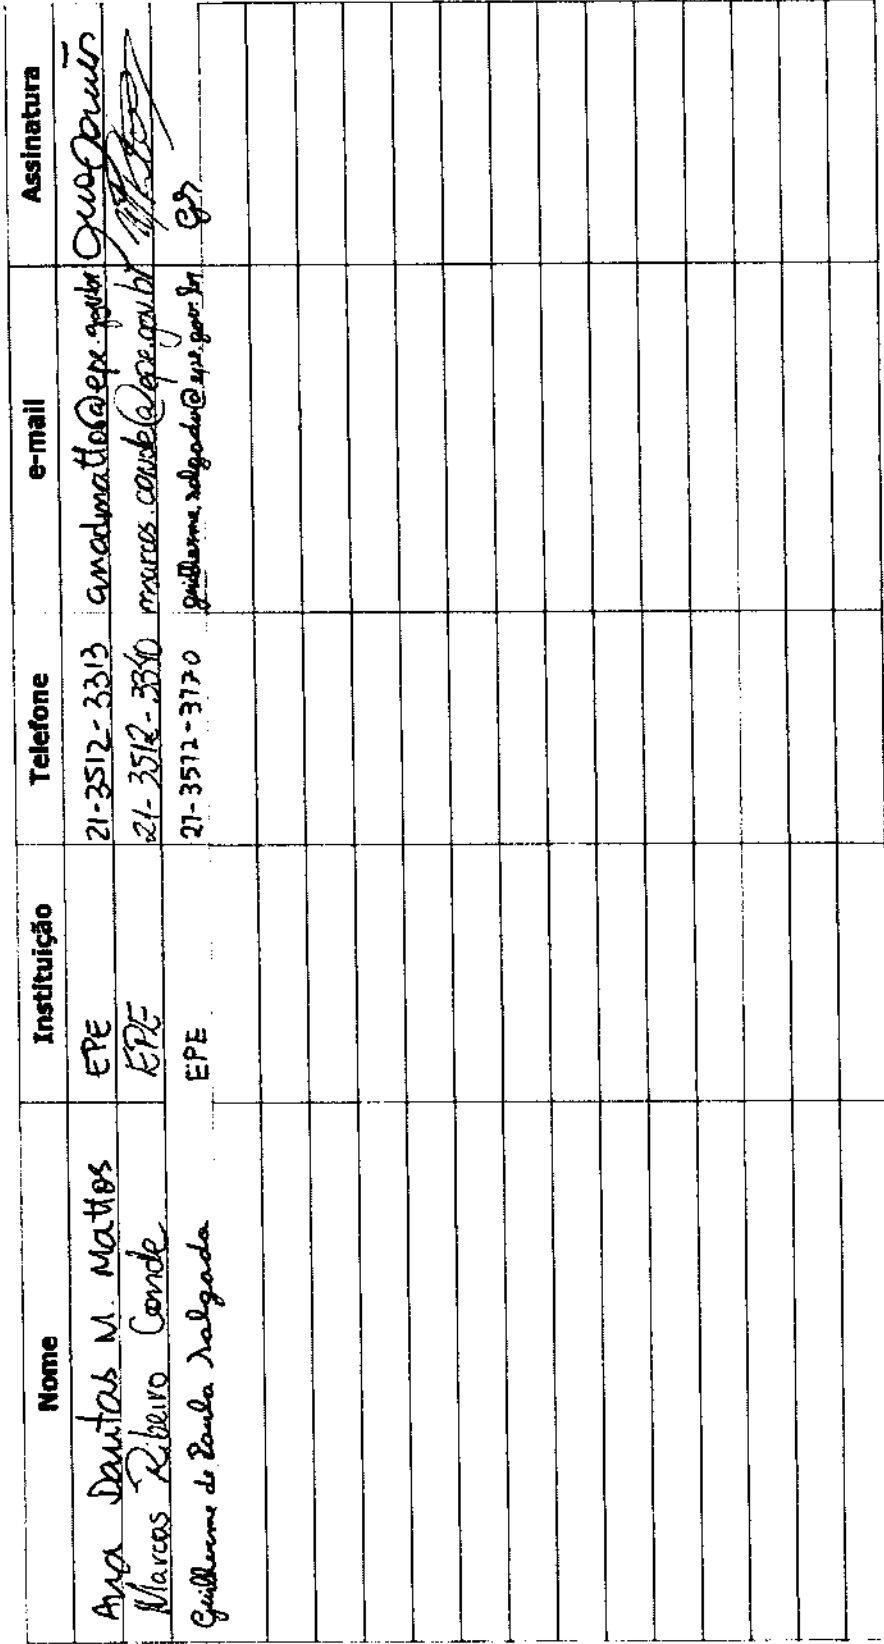 Nome Instituição Telefone e-mail Assinatura
Ana Dantas M. Mattos EPE 21-3512-3313 anadmattos@epe.gov.br
Marcos Ribeiro Conde EPE 21-3512-3340 marcos.conde@epe.gov.br
Guilherme de Paula Salgado EPE 21-3512-3170 guilherme.salgado@epe.gov.br GS